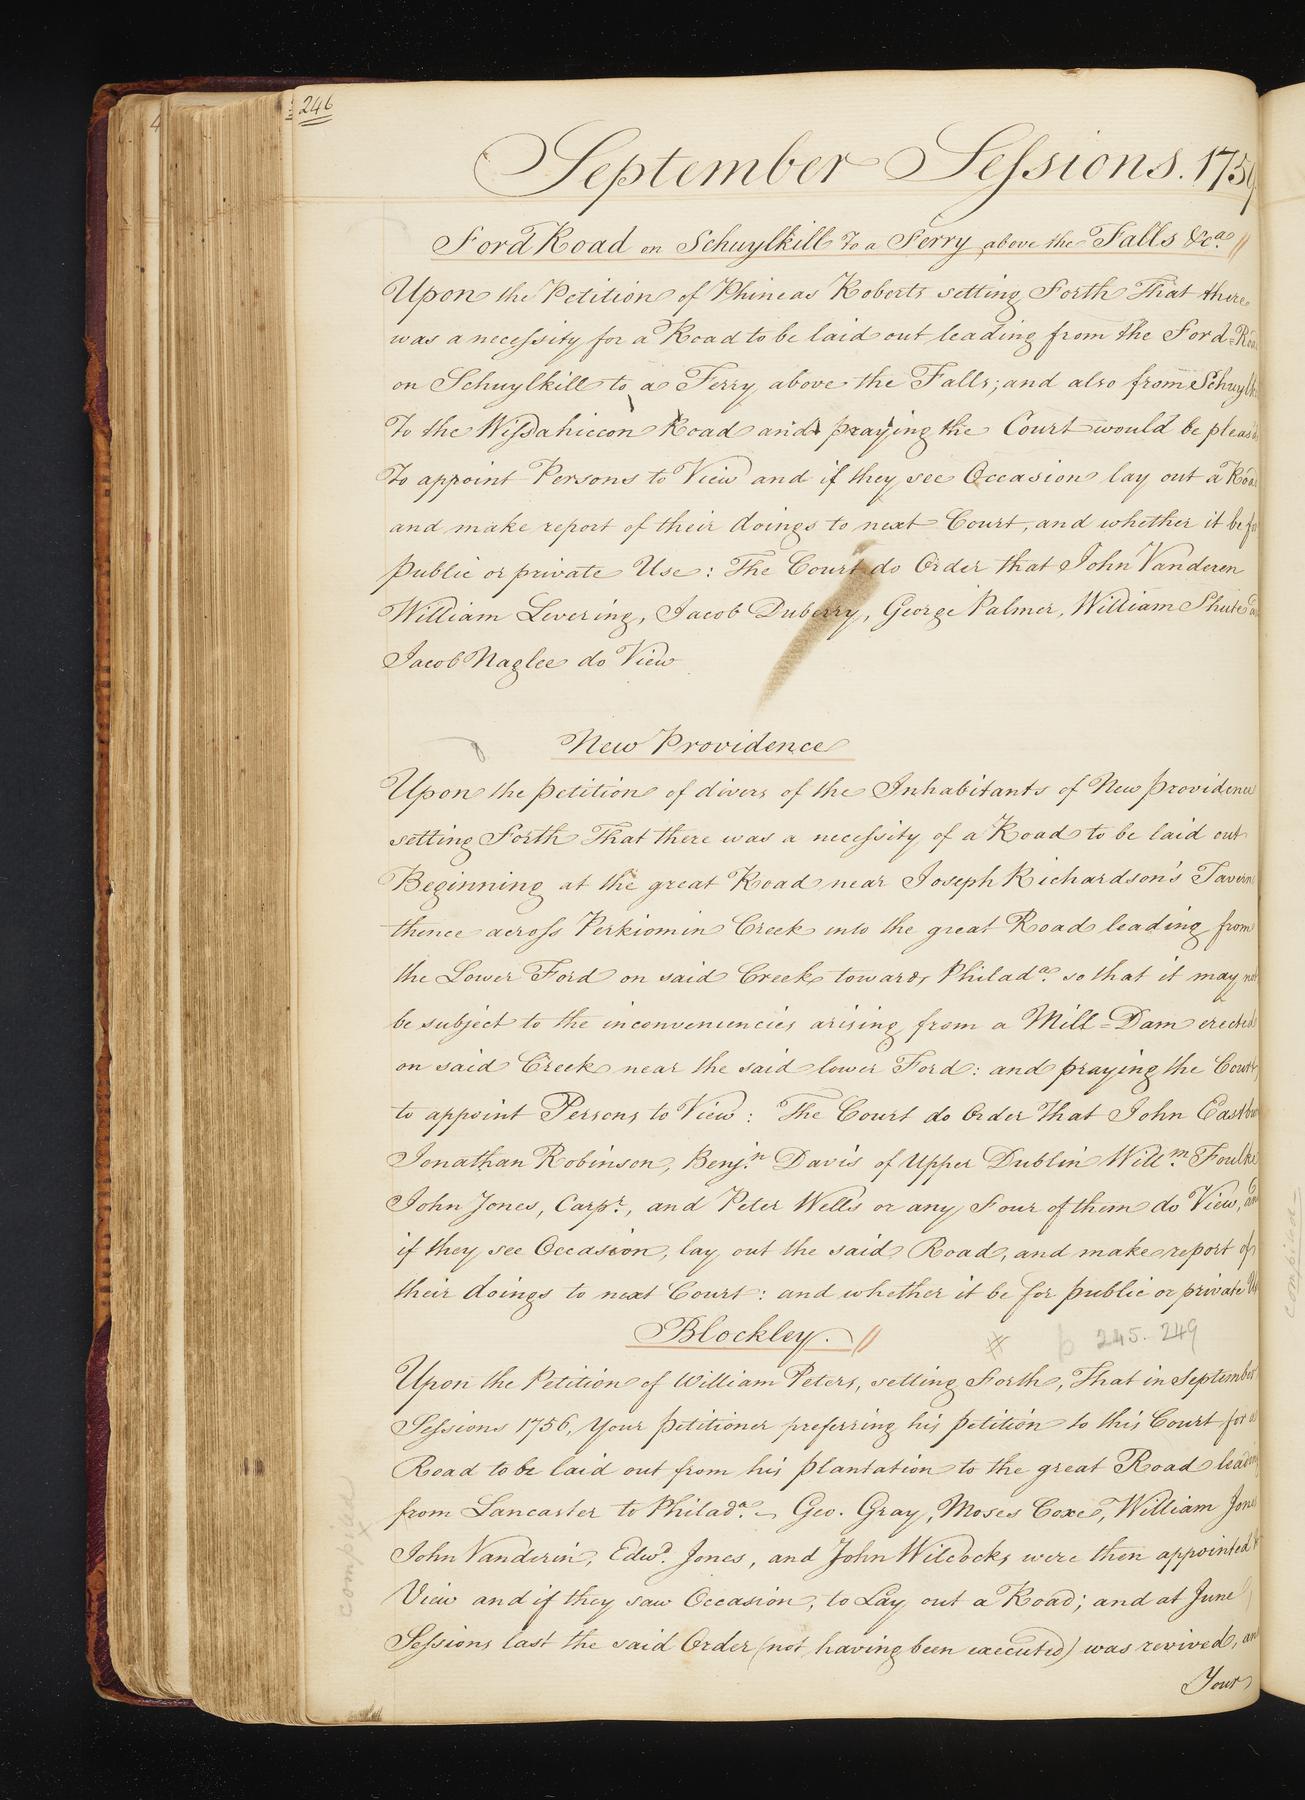 246
September Sessions. 1759
Ford Road on Schuylkill To a Ferry above the Falls &c.a
Upon the Petition of Phineas Roberts setting Forth That there
was a necessity for a Road to be laid out leading from the Ford-Roa
on Schuylkill to a Ferry above the Falls; and also from Schuylk
To the Wissahiccon Road and praying the Court would be pleas
To appoint Persons to View and if they see Occasion lay out a Roa
and make report of their doings to next Court, and whether it be fo
public or private Use: The Court do Order that John Vanderen
William Levering, Jacob Duberry, George Palmer, William Shute
Jacob Naglee do View
New Providence
Upon the petition of divers of the Inhabitants of New providence
setting Forth That there was a necessity of a Road to be laid out
Beginning at the great Road near Joseph Richardson's Tavern
thence across Perkiomin Creek into the great Road leading from
the Lower Ford on said Creek towards Philad.a so that it may not
be subject to the inconveniencies arising from a Mill=Dam erected
on said Creek near the said lower Ford: and praying the Court
to appoint Persons to View: The Court do Order That John Eastbu
Jonathan Robinson, Benj.n Davis of Upper Dublin Will.m Foulke
John Jones, Carp.r, and Peter Wells or any Four of them do View, an
if they see Occasion, lay out the said Road, and make report of
their doings to next Court: and whether it be for public or private U
Blockley. # p 245. 249
Upon the Petition of William Peters, setting Forth, That in September
Sessions 1756, Your petitioner preferring his petition to this Court for a
Road to be laid out from his plantation to the great Road leadin
from Lancaster to Philad.a Geo. Gray, Moses Coxe, William Jone
John Vanderin, Edw.d Jones, and John Wilcocks were then appointed t
View and if they saw Occasion, to Lay out a Road; and at June
Sessions last the said Order (not having been executed) was revived, an
Your
compied
compiled